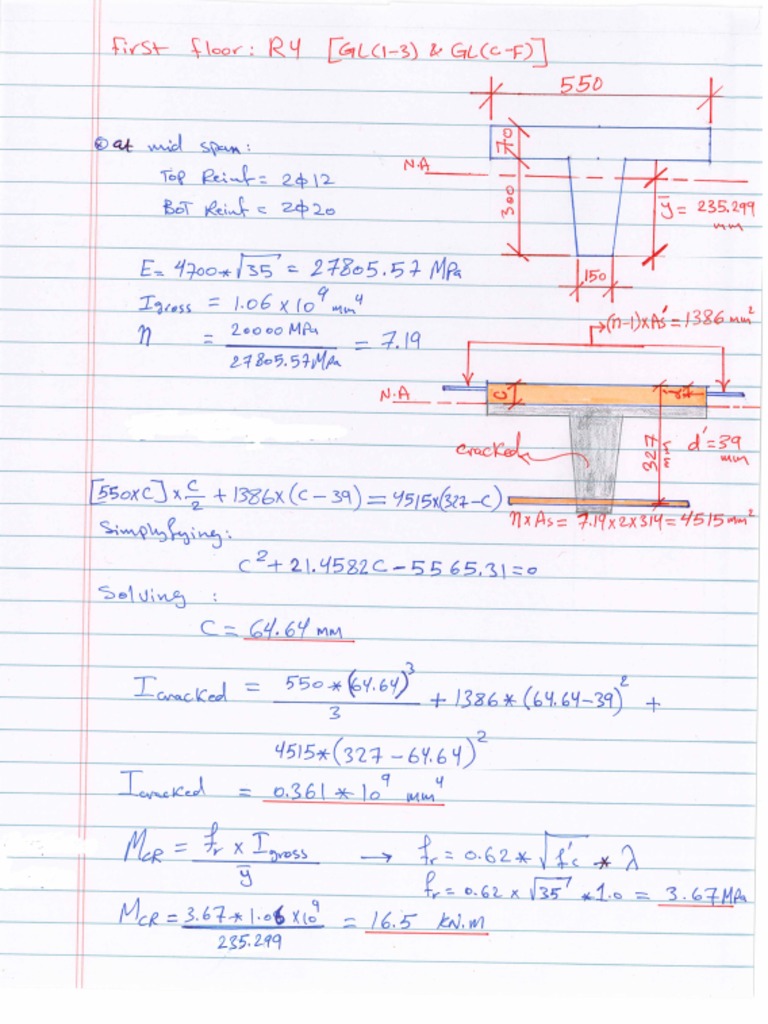 first floor: R4 [GL(1-3) & GL(C-F)]
550
⊗ at mid span:
Top Reinf = 2Φ12
BOT Reinf = 2Φ20
70
N.A
300
ȳ = 235.299
mm
150
E = 4700*√35 = 27805.57 MPa
Igross = 1.06 x 10^9 mm^4
n = 20000 MPa / 27805.57 MPa = 7.19
(n-1)xAs' = 1386 mm²
N.A
C
cracked
327
mm
d' = 39
mm
[550xC] x C/2 + 1386x(C-39) = 4515x(327-C)
nxAs = 7.19x2x314 = 4515 mm²
Simplyfying:
C² + 21.4582C - 5565.31 = 0
Solving :
C = 64.64 mm
Icracked = 550*(64.64)³ / 3 + 1386*(64.64-39)² +
4515*(327-64.64)²
Icracked = 0.361 * 10^9 mm^4
MCR = fr x Igross / ȳ → fr = 0.62 * √f'c * λ
fr = 0.62 x √35 * 1.0 = 3.67 MPa
MCR = 3.67*1.06 x10^9 / 235.299 = 16.5 kN.m